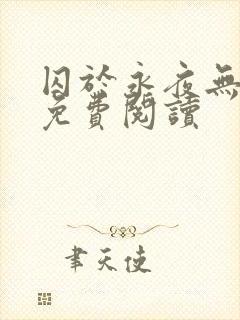 囚於永夜無
免費閱讀
聿天使